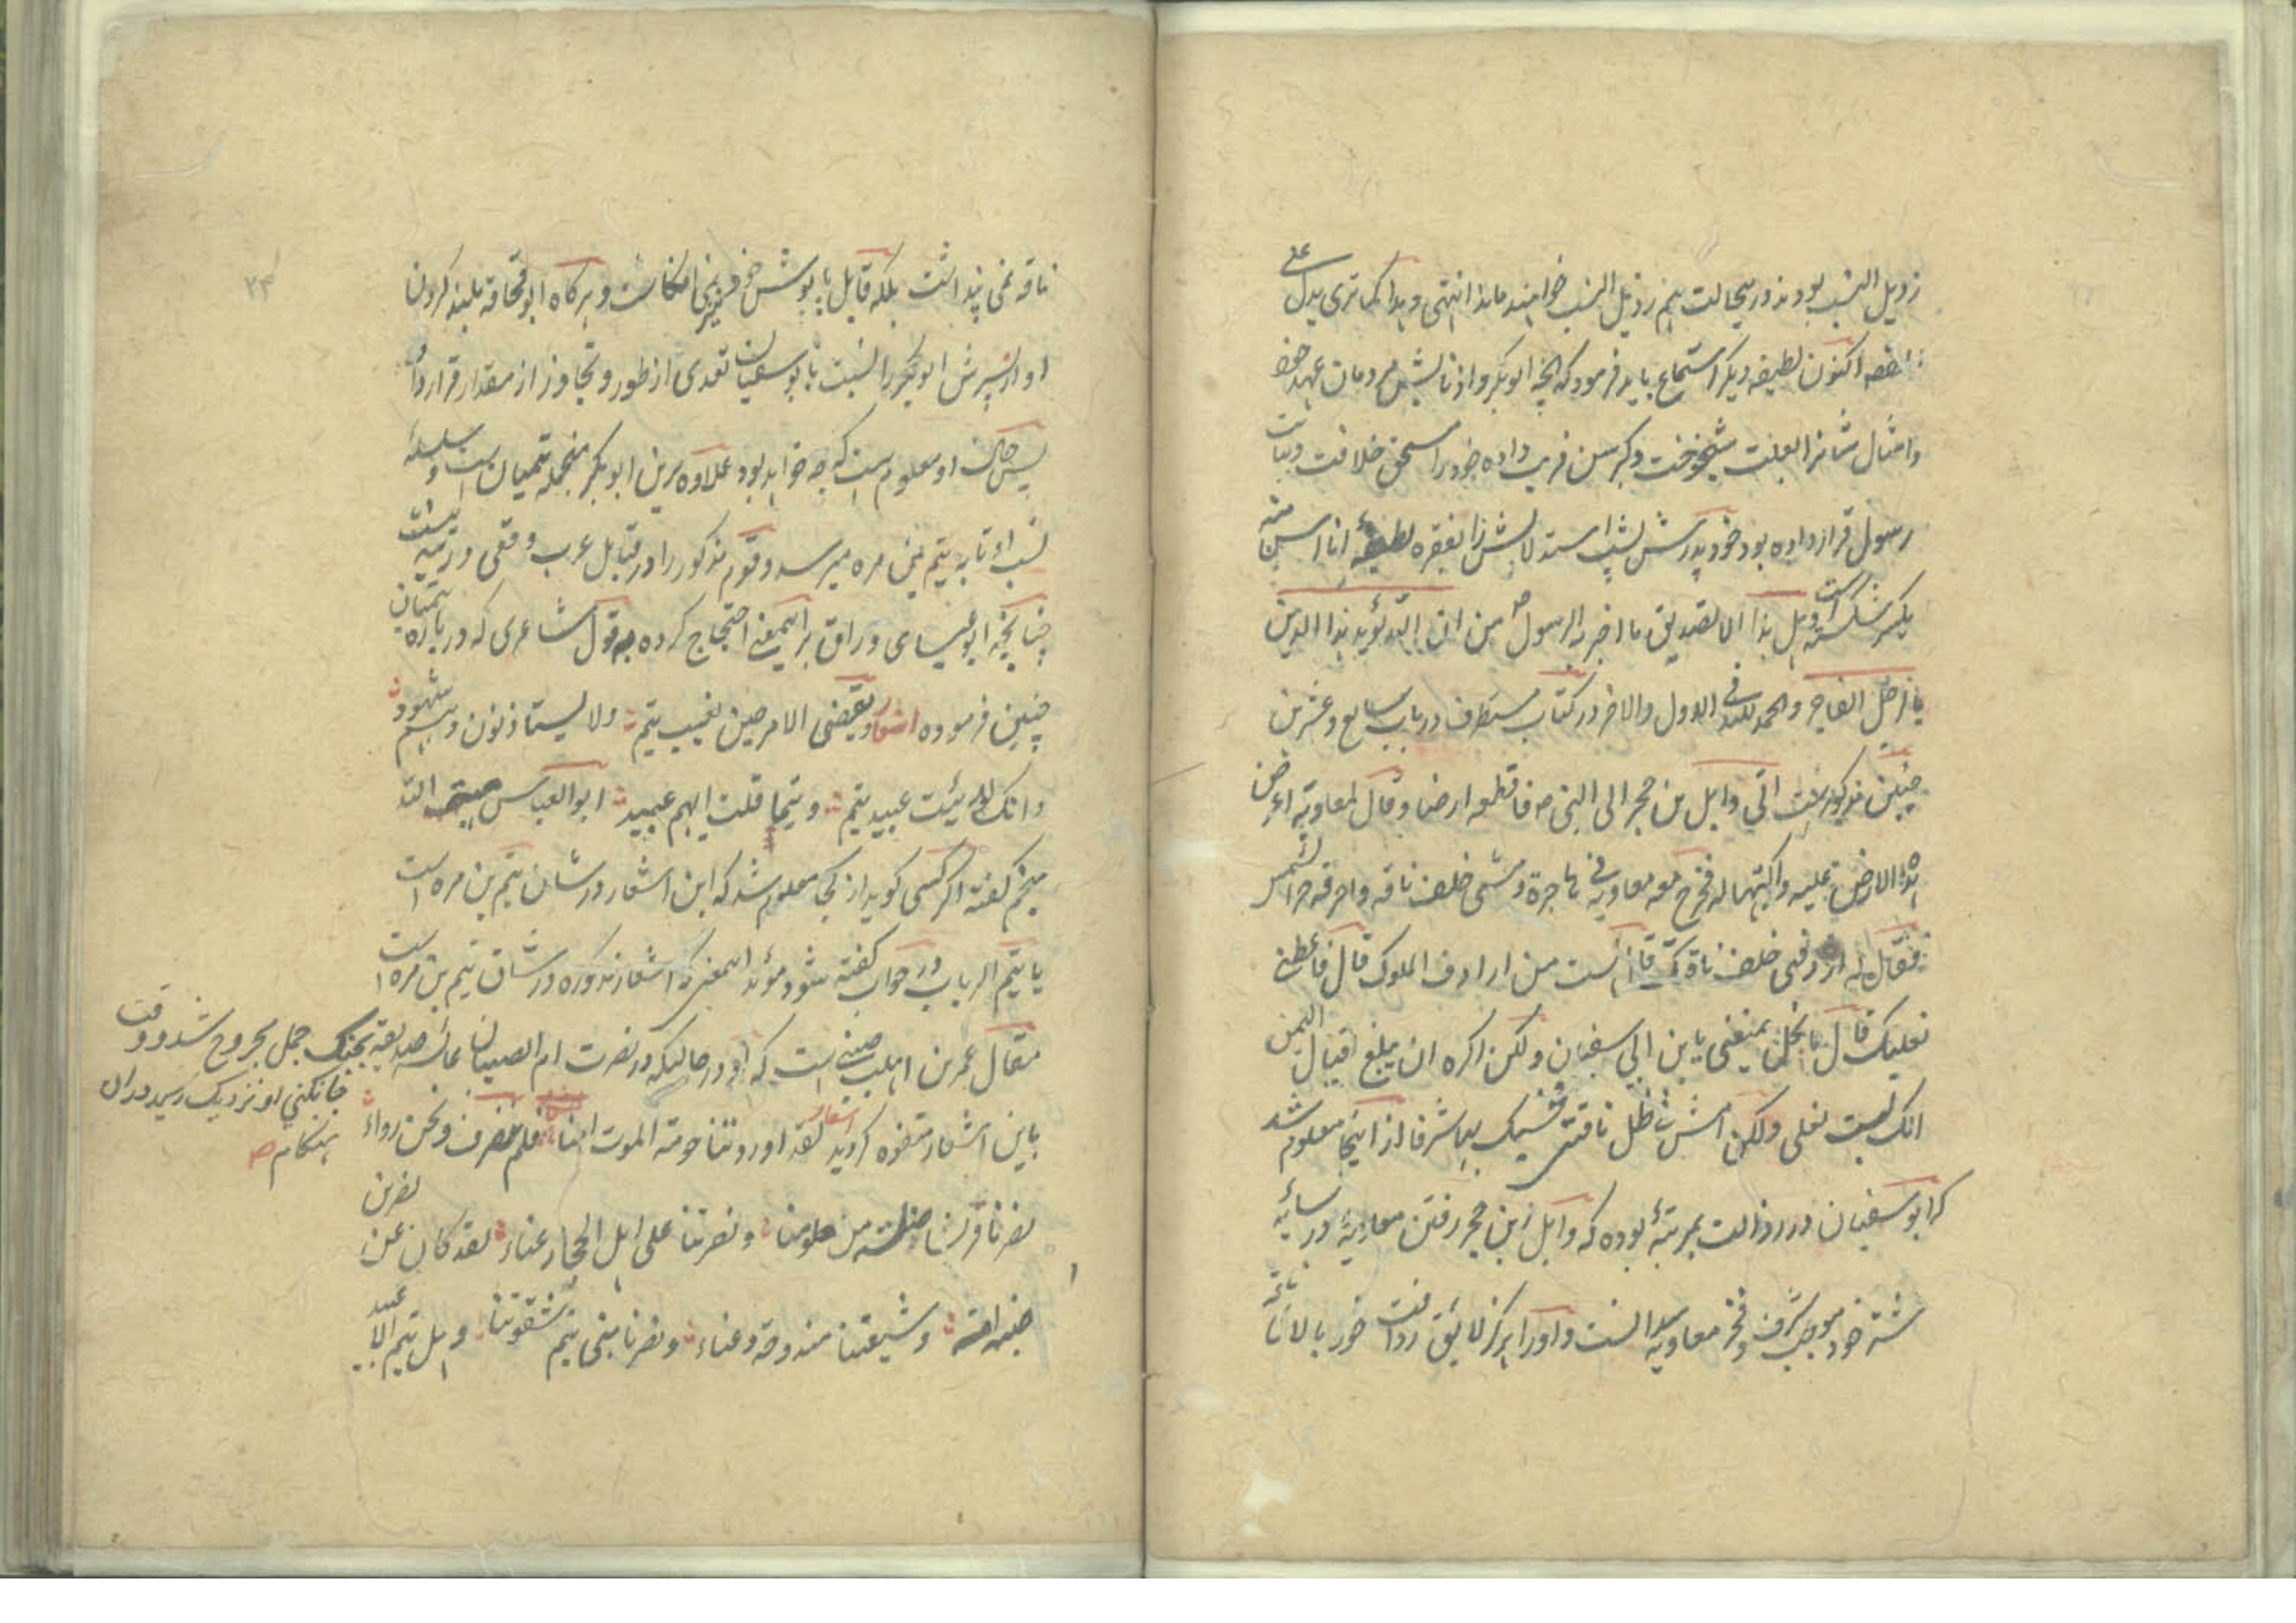 رذیل النسب بودند در سیحالت هم رذیل النسب خواهند ماند انتهی و هذا کما تری یدل علی
نقصه اکنون لطیفه دیگر استماع باید فرمود که آنچه ابوبکر و اذنابش مردمان عهد خود
و امثال شانرا بعلت شیخوخت و کبر سن فریب داده خود را مستحق خلافت و نیابت
رسول قرار داده بود خود پدرش لیث است دلایلش را بفقره لطیفه انا اسن منه
یکسر شکسته است و هل هذا الا تصدیق ما اخبر به الرسول ص من ان الله لیؤید هذا الدین
بالرجل الفاجر و الحمد لله فی الاول والاخر در کتاب مستطرف در باب سابع و عشرین
چنین مذکور است اتی وایل بن حجر الی النبی ص فاقطعه ارضا و قال لمعاویة اعرض
هذه الارض علیه و اکتبها له فخرج معه معاویة فی هاجرة و مشی خلف ناقه و احرقه حر الشمس
فقال له اردفنی خلف ناقتک قال لست من ارداف الملوک قال فاعطنی
نعلیک قال ما بخل یمنعنی یا بن ابی سفیان ولکن اکره ان یبلغ اقیال الیمن
انک لبست نعلی ولکن امش فی ظل ناقتی فحسبک بها شرفا از اینجا معلوم شد
که ابوسفیان در رذالت بمرتبه بوده که وایل بن حجر رفتن معاویه در سایه
شتر خود موجب شرف و فخر معاویه دانست و او را هرگز لایق ردافت خود بالای
ناقه نمی پنداشت بلکه قابل پاپوش خود نیز نمی انگاشت و هرگاه ابوقحافه بلند کردن
آواز پسرش ابوبکر را نسبت بابوسفیان تعدی از طور و تجاوز از مقدار قرار داد
پس حال او معلوم است که چه خواهد بود علاوه برین ابوبکر منجمله تیمیان است و سلسله
نسب او تا به تیم بن مره میرسد و قوم مذکور را در قبایل عرب وقعی و رتبه نیست
چنانچه ابوعیسای وراق بر اینمعنی احتجاج کرده به قول شاعری که در باره تیمیان
چنین فرموده اشعار و یقضی الامر حین تغیب تیم ولا یستاذنون وهم شهود
وانک لو رئیت عبید تیم و تیما قلت ایهم عبید ابوالعباس هبة الله
منجم گفته اگر کسی گوید از کجا معلوم شد که این اشعار در شان تیم بن مره است
یا تیم الرباب در جواب گفته شود مؤید اینمعنی که اشعار مذکوره در شان تیم بن مره است
مقال عمر بن اهلب ضبی است که او در حالیکه در نصرت ام الصبیان عایشه صدیقه بجنگ جمل مجروح شد و وقت
جانکنی او نزدیک رسید دران هنگام ص
باین اشعار متفوه گردید اشعار لقد اوردتنا حومة الموت امنا فلم ننصرف و نحن رواء
نصرنا قریشا ضلة من حلومنا و نصرتنا علی اهل الحجاز عناء لقد کان عن نصر بن
ضبة امه و شیعتنا مندوحة و غناء و نصرنا بنی تیم شقوتنا و هل تیم الا عبید